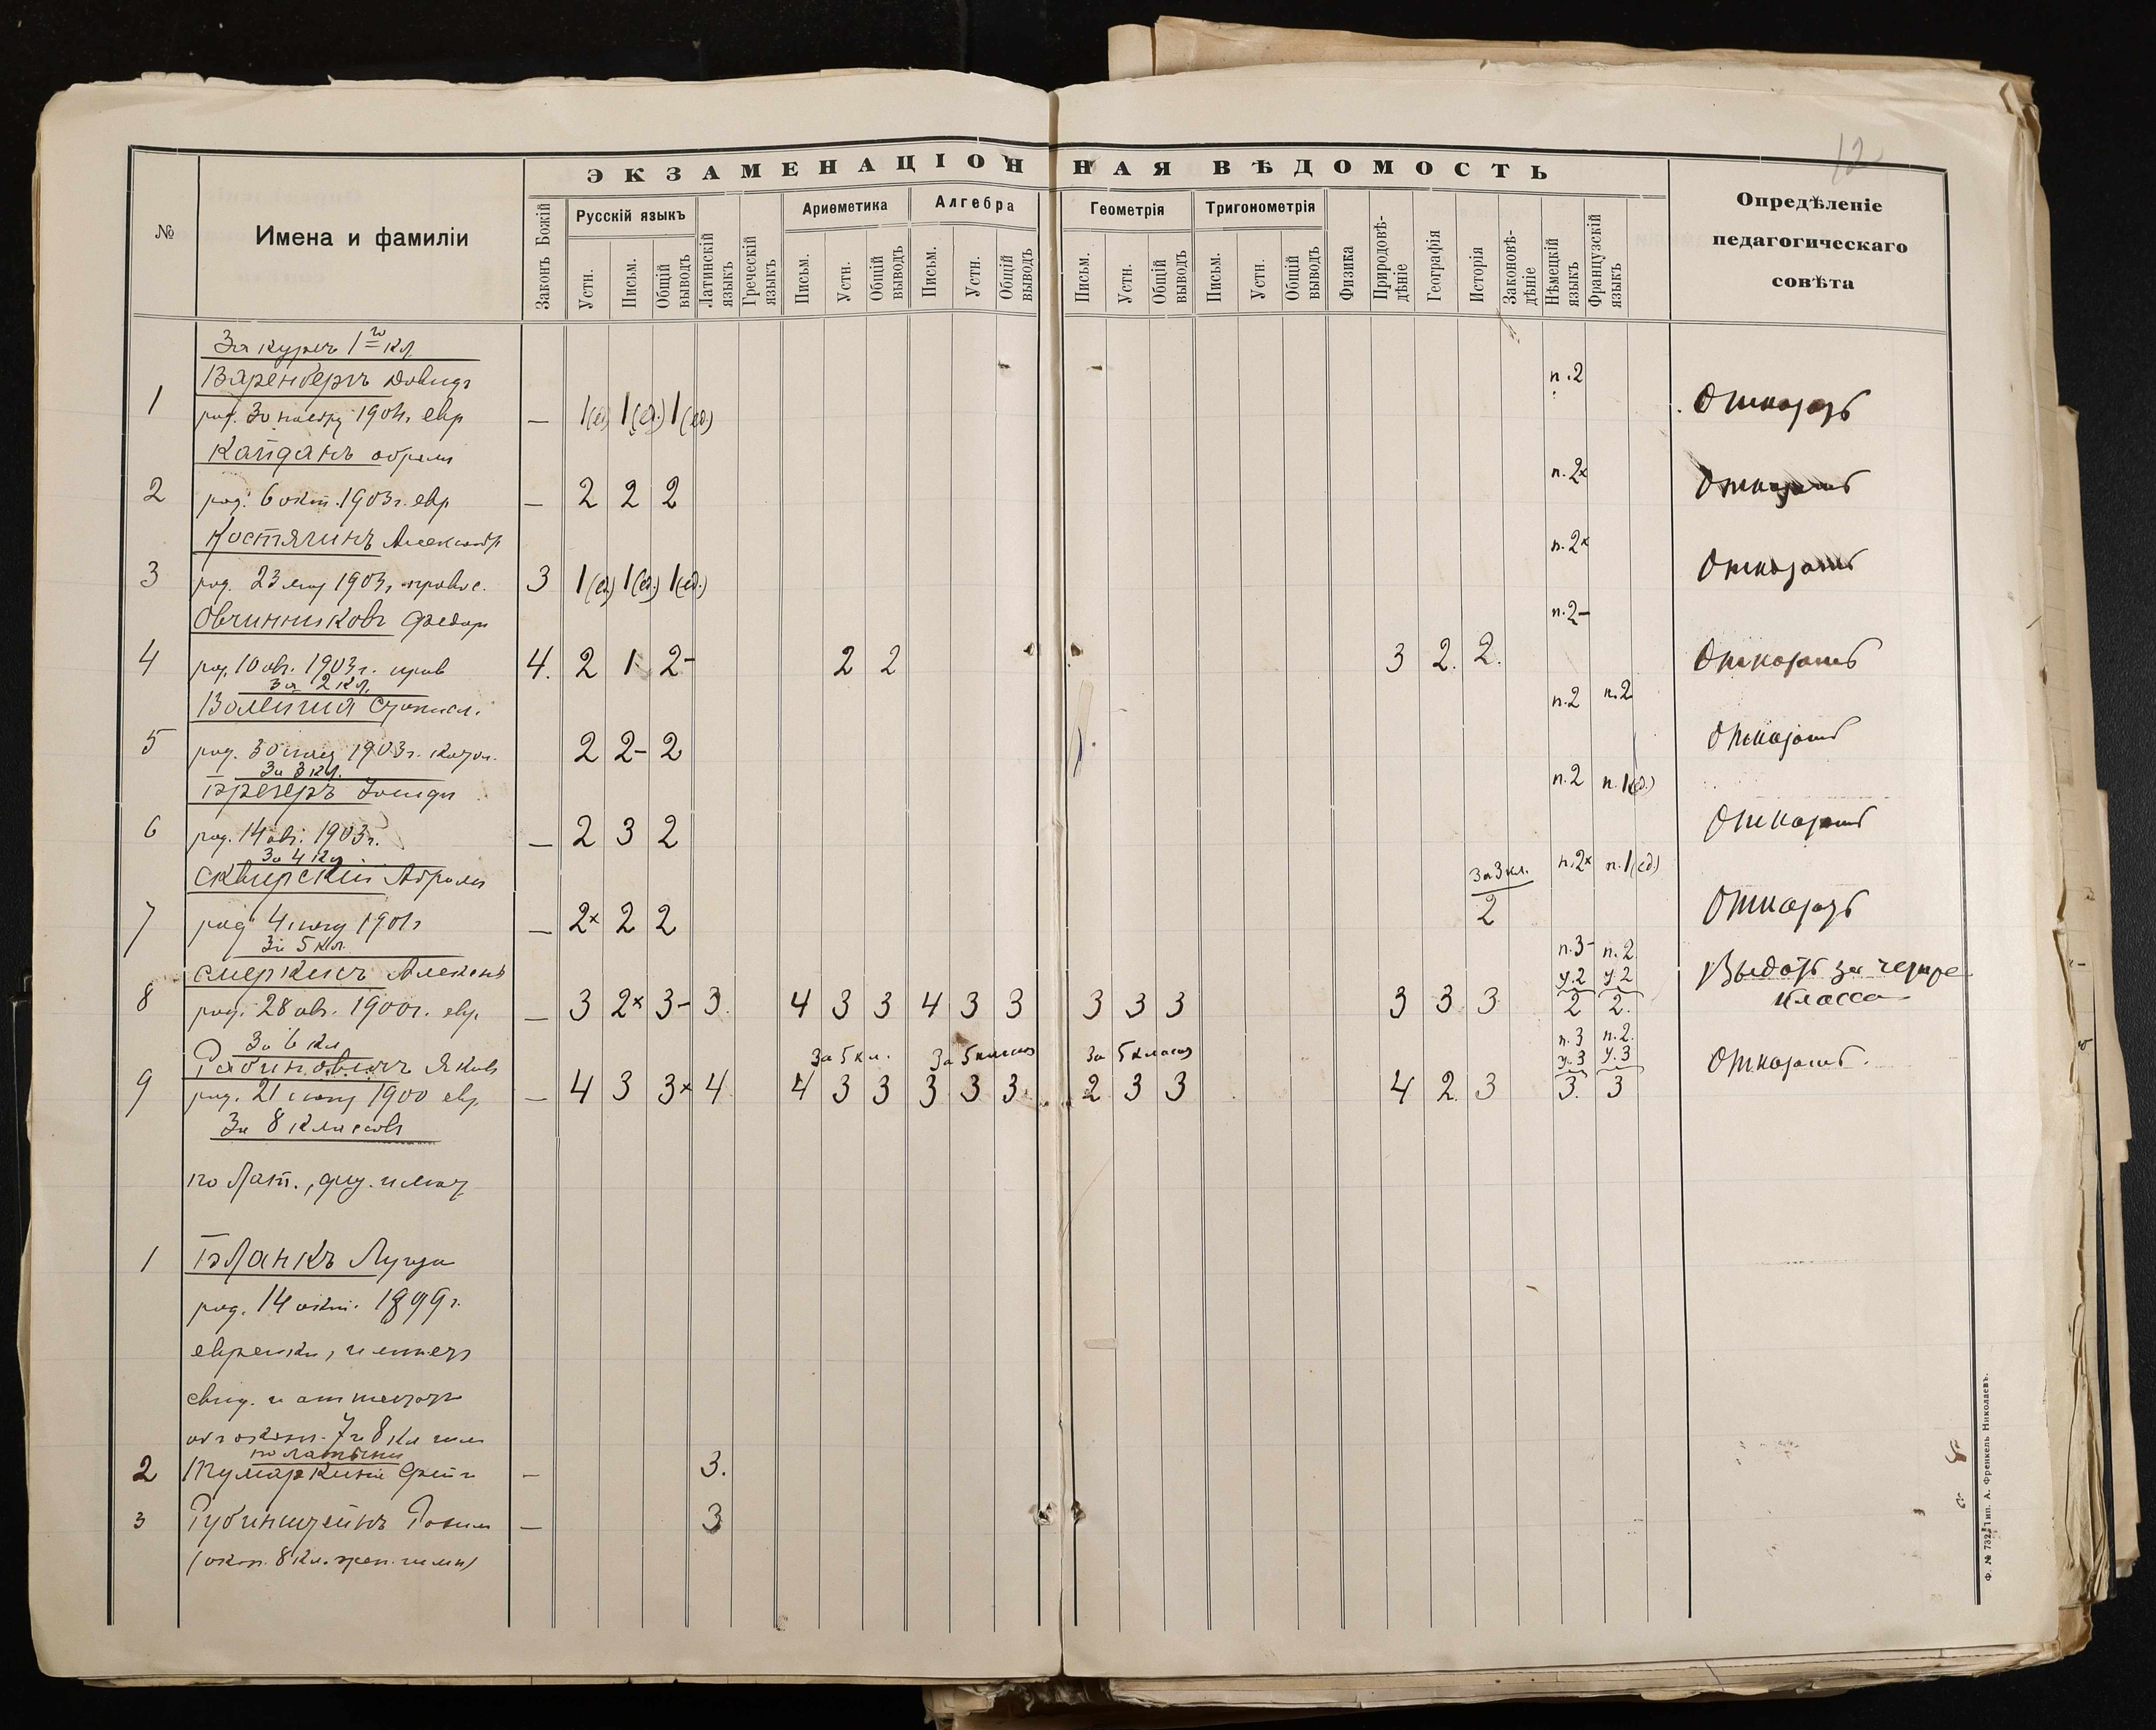 12
ЭКЗАМЕНАЦІОННАЯ ВѢДОМОСТЬ
№
Имена и фамиліи
Законъ Божій
Русскій языкъ
Устн.
Письм.
Общій выводъ
Латинскій языкъ
Греческій языкъ
Ариѳметика
Письм.
Устн.
Общій выводъ
Алгебра
Письм.
Устн.
Общій выводъ
Геометрія
Письм.
Устн.
Общій выводъ
Тригонометрія
Письм.
Устн.
Общій выводъ
Физика
Природовѣ-дѣніе
Географія
Исторія
Законовѣ-дѣніе
Нѣмецкій языкъ
Французскій языкъ
Опредѣленіе
педагогическаго
совѣта
За курсъ 1го кл.
Варенбергъ Давидъ п.2
1 род. 30 1904 г. евр — 1(ед) 1(ед.) 1(ед) Отказать
Кайданъ Абрамъ п.2×
2 род. 6 окт. 1903 г. евр — 2 2 2 Отказать
Костягинъ Александръ п.2×
3 род. 23 1903 г. правос. 3 1(ед) 1(ед.) 1(ед.) Отказать
Овчинниковъ Федоръ п.2-
4 род. 10 авг. 1903 г. прав 4. 2 1 2- 2 2 3 2. 2. Отказать
за 2 кл.
п.2 п.2
5 род. 30 1903 г. катол. 2 2- 2 Отказать
За 3 кл.
Брегеръ п.2 п.1(ед.)
6 род. 14 авг. 1903 г. — 2 3 2 Отказать
За 4 кл.
Сквирскій Абрамъ За 3 кл. п.2× п.1(ед)
7 род. 4 1901 г — 2× 2 2 2 Отказать
За 5 кл.
п.3- п.2
Смеркинъ у.2 у.2 Выдать за четыре
8 род. 28 авг. 1900 г. евр. — 3 2× 3- 3. 4 3 3 4 3 3 3 3 3 3 3 3 2 2. класса
За 6 кл.
п.3 п.2.
Рабиновичъ Яковъ За 5 кл. За 5 классъ За 5 классъ у.3 у.3 Отказать.
9 род. 21 1900 евр. — 4 3 3× 4 4 3 3 3 3 3. 2 3 3 4 2. 3 3. 3
За 8 классовъ
по Лат., физ. и мат
1 Бланкъ Луиза
род. 14 окт. 1899 г.
еврейка, имеетъ
свид. и аттестатъ
7 и 8 кл гим
по латыни
2 Тумаркина — 3.
3 Рубинштейнъ — 3
(окон. 8 кл. жен. гимн)
Ф. № 732. Тип. А. Френкель Николаевъ.